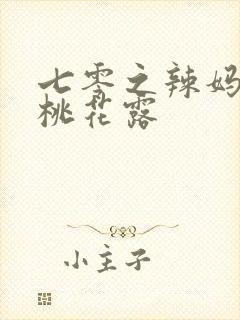 七零之辣妈
桃花露
小主子